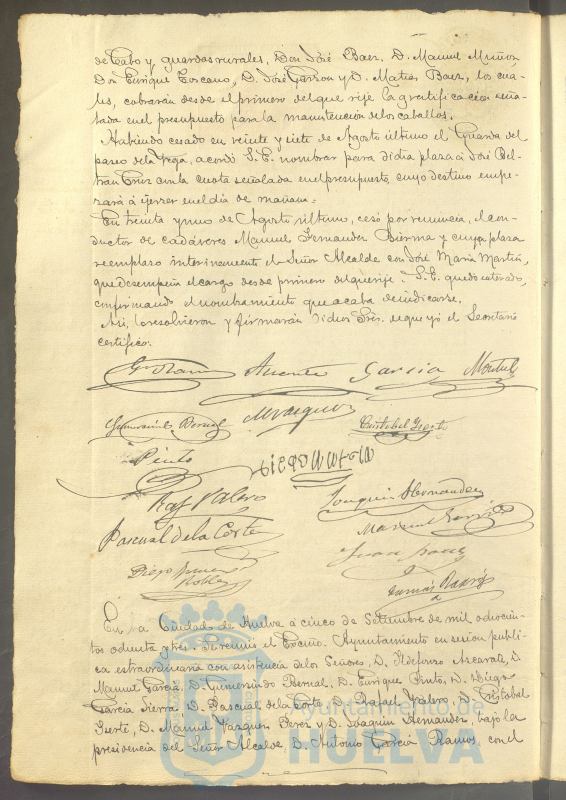 de Cabo y guardas rurales, Don José Baez, D. Manuel Muñoz
Don Enrique Toscano, D. José Garzon y D. Matias Baez, los cua-
les, cobrarán desde el primero del que rije la gratificacion seña-
lada en el presupuesto para la manutencion de los caballos.
Habiendo cesado en veinte y siete de Agosto último el Guarda del
paseo de la Vega, acordó S. E. nombrar para dicha plaza á José Bel-
tran Cruz con la cuota señalada en el presupuesto cuyo destino empe-
zará á ejercer en el dia de mañana=
En treinta y uno de Agosto último, cesó por renuncia, el con-
ductor de cadáveres Manuel Fernandez Bierma y cuya plaza
reemplazo interinamente el Señor Alcalde con José Maria Martin,
que desempeña el cargo desde primero del que rije. S. E. quedó enterado,
confirmando el nombramiento que acaba de indicarse.
Asi, lo resolvieron y firmarán dichos Sres. de que yo el Secretario
certifico:
Garcia
Gumersindo Bernal M Vazquez Cristobal
Pinto
Raf Valero Joaquin Hernandez
Pascual de la Corte Manuel
Diego
En la Ciudad de Huelva á cinco de Setiembre de mil ochocien-
tos ochenta y tres. Se reunió el Excmo. Ayuntamiento en sesion publi-
ca extraordinaria con asistencia de los Señores, D. Ildefonso Azcarate, D.
Manuel Garcia, D. Gumersindo Bernal, D. Enrique Pinto, D. Diego
Garcia Sierra D. Pascual de la Corte, D. Rafael Valero, D. Cristobal
D. Manuel Vazquez Perez y D. Joaquin Hernandez, bajo la
presidencia del Señor Alcalde D. Antonio Garcia Ramos, con el
Ayuntamiento de
HUELVA